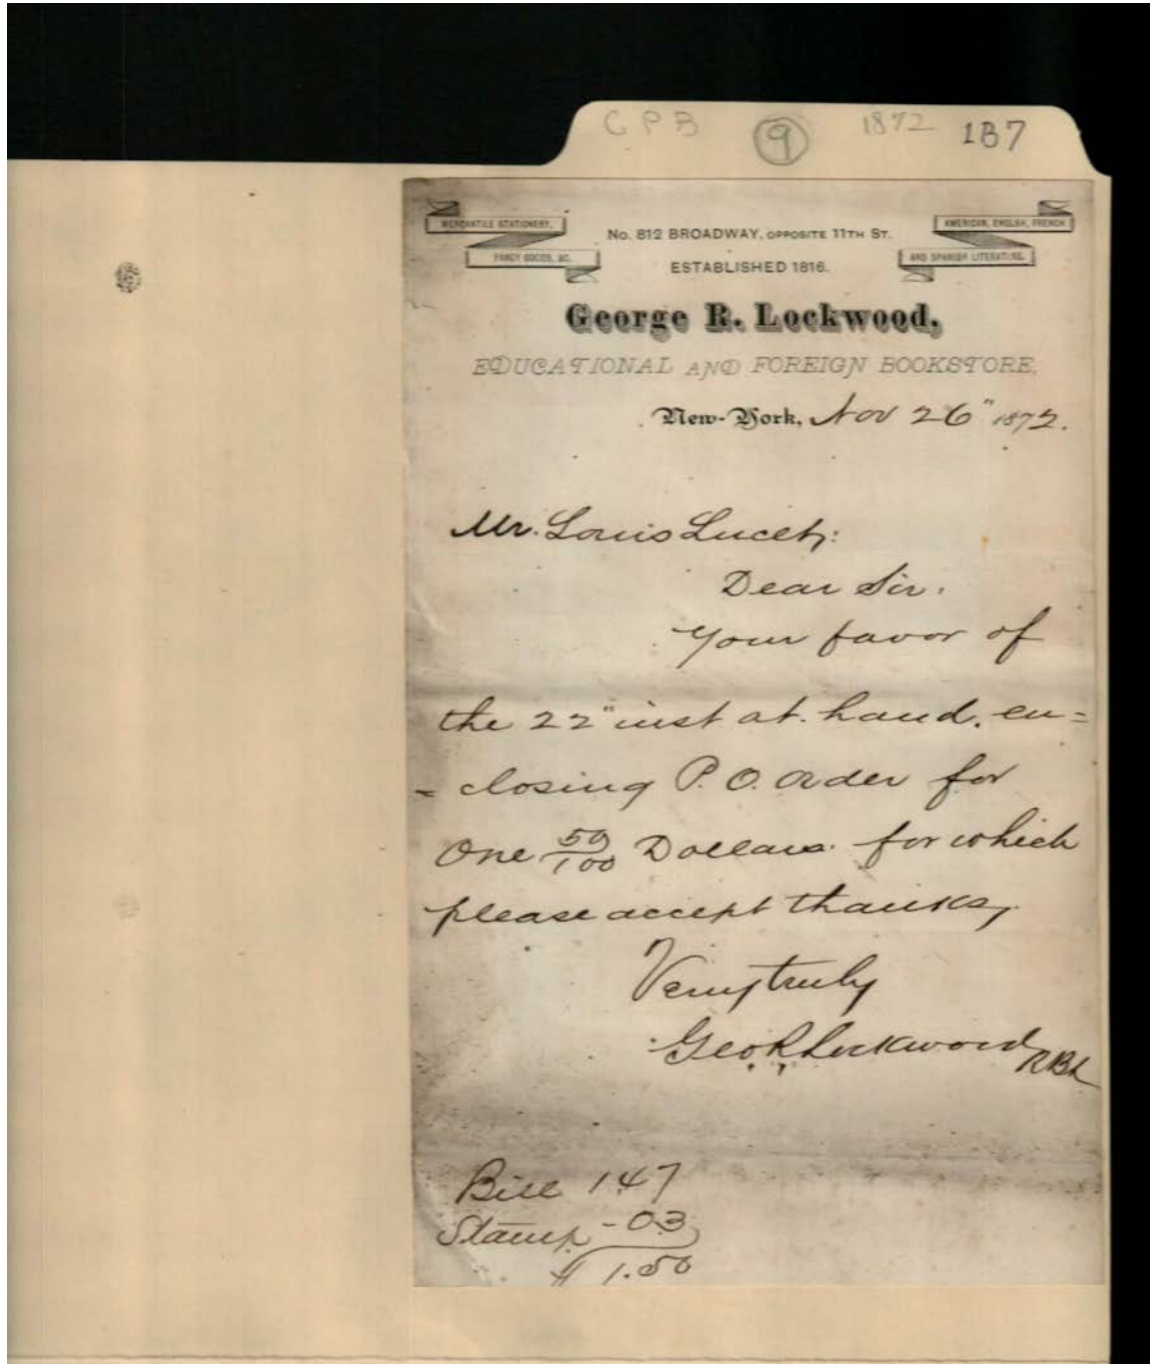 C P B 9 1872 1B7
MERCANTILE STATIONERY,
FANCY GOODS, &C.
No. 812 BROADWAY, OPPOSITE 11TH ST.
ESTABLISHED 1816.
AMERICAN, ENGLISH, FRENCH
AND SPANISH LITERATURE.
George R. Lockwood,
EDUCATIONAL AND FOREIGN BOOKSTORE,
New-York, Nov 26" 1872.
Mr. Louis Lucet,:
Dear Sir.
Your favor of
the 22" inst at hand. en=
= closing P. O. Order for
One 50/100 Dollars for which
please accept thanks,
Very truly
Geo R Lockwood
RBL
Bill 147
Stamp - 03
$ 1.50